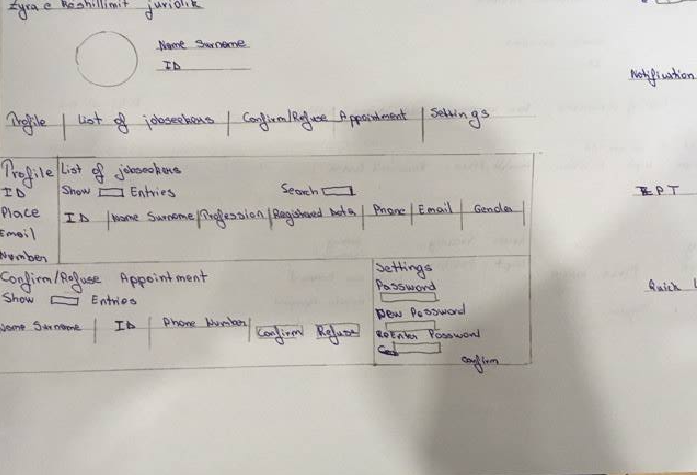 Zyra e Këshillimit juridik
Name Surname
ID
Notification
Profile | List of jobseekers | Confirm/Refuse Appointment | Settings
Profile
ID
Place
Email
Number
List of jobseekers
Show Entries Search
ID | Name Surname | Profession | Registered | Phone | Email | Gender
PT
Confirm/Refuse Appointment
Show Entries
Name Surname | ID | Phone Number | Confirm Refuse
Settings
Password
New Password
ReEnter Password
Confirm
Quick